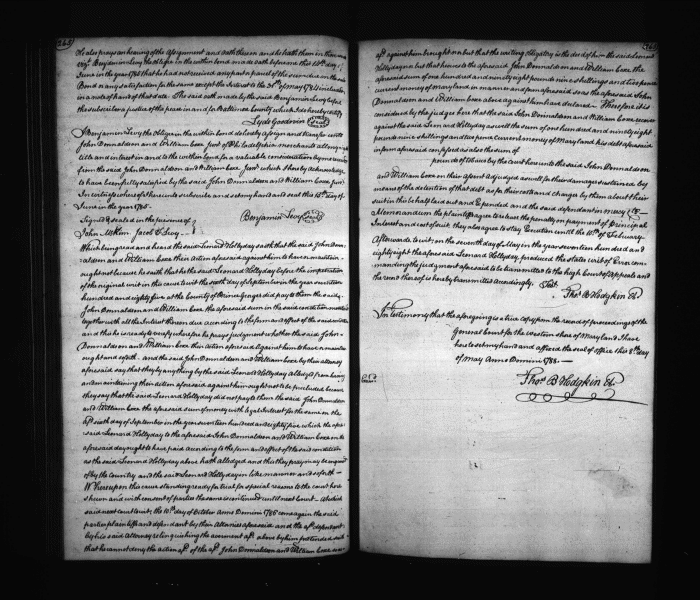 He also prays an hearing of the Assignment and oath thereon and he hath them in these words
Benjamin Levy the Obligee in the within bond made oath before me this 15th day of
June in the year 1785 that he had not received any part or parcel of the sum due on the said
Bond or any satisfaction for the same except the Interest to the 20th of May 1784 inclusive
Lyde Goodwin Seal
I Benjamin Levy the Obligee in the within bond do hereby assign and transfer unto
John Donnaldson and William Coxe Junr of Philadelphia merchants all my right
title and interest in and to the within bond for a valuable consideration by me received
from the said John Donnaldson and William Coxe Junr which I hereby acknowledge
to have been fully satisfied by the said John Donnaldson and William Coxe Junr
In witness whereof I hereunto subscribe and set my hand and seal this 15th day of
June in the year 1785
Signed & sealed in the presence of Benjamin Levy Seal
John McKim Jacob F. Levy
Which being read and heard the said Leonard Hollyday saith that the said John Don-
naldson and William Coxe their Action aforesaid against him to have or maintain
ought not because he saith that he the said Leonard Hollyday before the impetration
of the original writ in this cause to wit the sixth day of September in the year seventeen
hundred and eighty five at the County of Prince Georges did pay to them the said
John Donnaldson and William Coxe the aforesaid sum in the said condition mentioned
together with all the Interest thereon due according to the form and effect of the said condition
and this he is ready to verify wherefore he prays judgment whether the said John
Donnaldson and William Coxe their action aforesaid against him to have or maintain
ought and so forth. And the said John Donnaldson and William Coxe by their attorney
aforesaid say that they by any thing by the said Leonard Hollyday alledged from having
and maintaining their action aforesaid against him ought not to be precluded because
they say that the said Leonard Hollyday did not pay to them the said John Donnaldson
and William Coxe the aforesaid sum of money with legal Interest for the same on the
sixth day of September in the year seventeen hundred and eighty five which the
said Leonard Hollyday to the aforesaid John Donnaldson and William Coxe on the
aforesaid day ought to have paid according to the form and effect of the said condition
as the said Leonard Hollyday above hath alledged and this they pray may be enquired
of by the country and the said Leonard Hollyday in like manner and so forth
Whereupon this cause standing ready for trial for special reasons to the court here
shewn and with consent of parties the same is continued until next Court. At which
said next court to wit, the 10th day of October Anno Domini 1786 come again the said
parties plaintiffs and defendant by their Attornies aforesaid and the afd defendant
by his said Attorney relinquishing the averment afd above by him pretended saith
that he cannot deny the action afd of the afd John Donnaldson and William Coxe
afd against him brought nor but that the writing Obligatory is the deed of him the said Leonard
Hollyday nor but that he owes to the aforesaid John Donnaldson and William Coxe the
aforesaid sum of one hundred and ninety eight pounds nine shillings and six pence
current money of Maryland in manner and form aforesaid as the aforesaid John
Donnaldson and William Coxe above against him have declared. Wherefore it is
considered by the judges here that the said John Donnaldson and William Coxe recover
against the said Leonard Hollyday as well the sum of one hundred and ninety eight
pounds nine shillings and six pence current money of Maryland his debt aforesaid
in form aforesaid confessed as also the sum of
pounds of tobacco by the court here unto the said John Donnaldson
and William Coxe on their assent adjudged as well for their damages sustained by
means of the detention of that debt as for their costs and charges by them about their
suit in this behalf laid out and Expended and the said defendant in mercy &c.
Memorandum the plaintiff agree to release the penalty on payment of Principal
Interest and cost of suit, they also agree to stay Execution until the 15th of February
Afterwards to wit, on the seventh day of May in the year seventeen hundred and
eighty eight the aforesaid Leonard Hollyday produced the states writ of Error com-
manding the judgment aforesaid to be transmitted to the high Court of Appeals and
the record thereof is hereby transmitted accordingly. Test.
Thos B Hodgkin Clk
In testimony that the aforegoing is a true Copy from the record of proceedings of the
General Court for the western shore of Maryland I have
hereto set my hand and affixed the seal of office this 8th day
of May Anno Domini 1788.
Thos B Hodgkin Clk